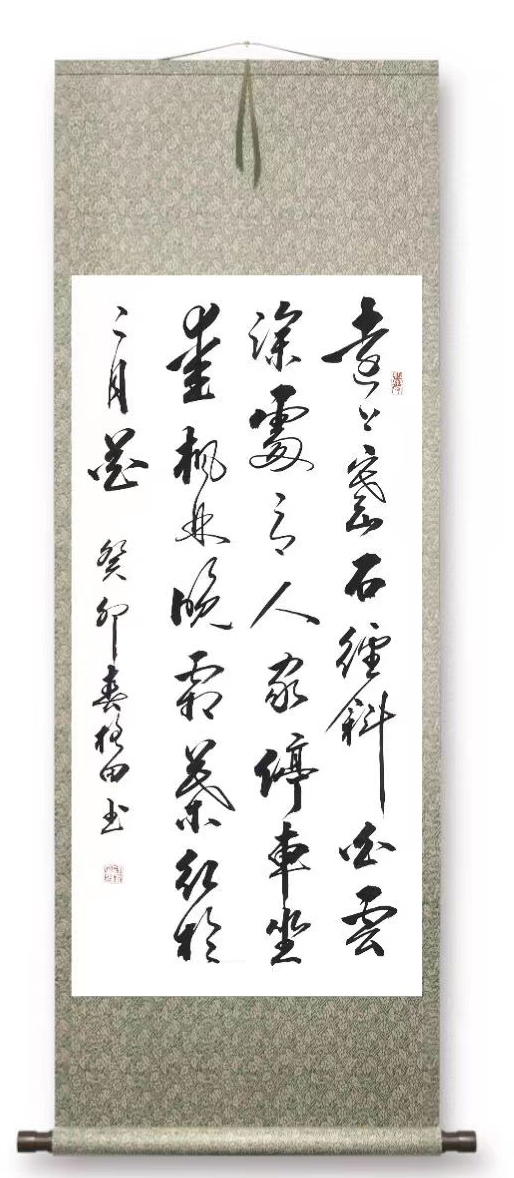 遠上寒山石徑斜白雲
深處有人家停車坐
愛楓林晚霜葉紅於
二月花 癸卯春田书